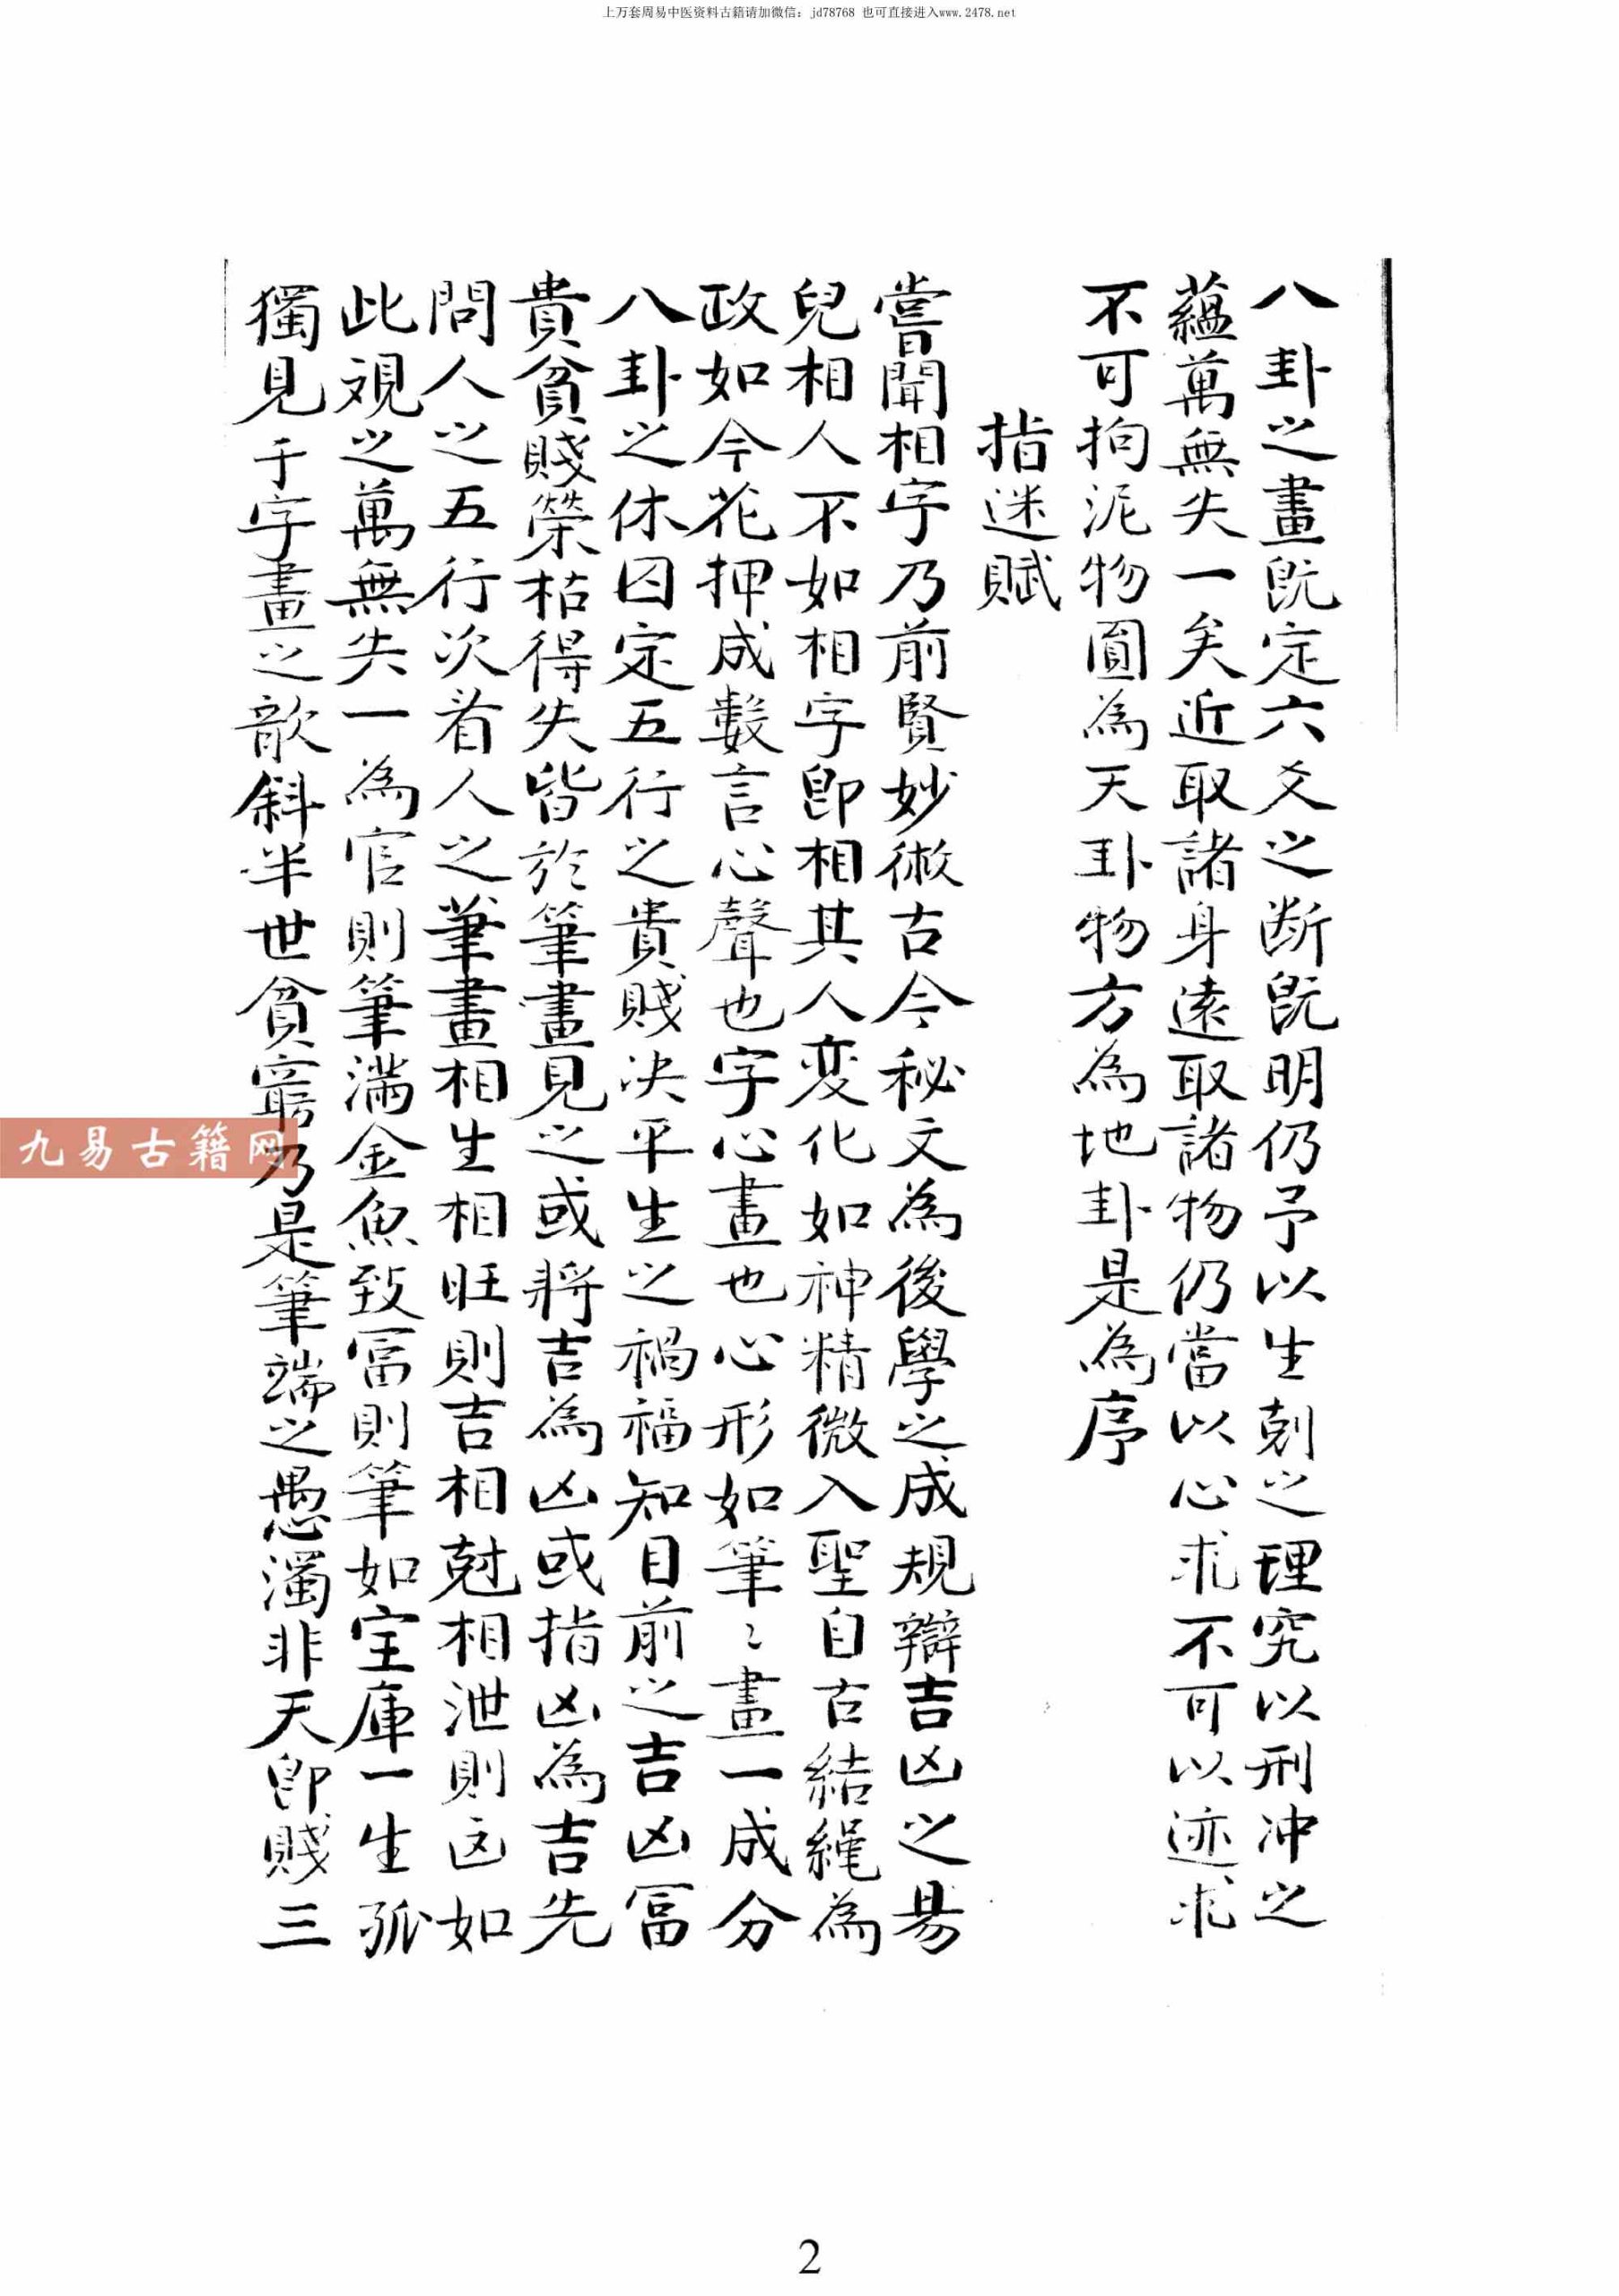 上万套周易中医资料古籍请加微信：jd78768 也可直接进入www.2478.net
八卦之畫既定六爻之断既明仍予以生剋之理究以刑冲之
蘊萬無失一矣近取諸身遠取諸物仍當以心求不可以迹求
不可拘泥物圓為天卦物方為地卦是為序
指迷賦
嘗聞相字乃前賢妙微古今秘文為後學之成規辯吉凶之易
兒相人不如相字即相其人变化如神精微入聖自古結繩為
政如今花押成數言心聲也字心畫也心形如筆〻畫一成分
八卦之休囚定五行之貴賤决平生之禍福知目前之吉凶冨
貴貧賤榮枯得失皆於筆畫見之或將吉為凶或指凶為吉先
問人之五行次看人之筆畫相生相旺則吉相尅相泄則凶如
此观之萬無失一為官則筆滿金魚致冨則筆如宝庫一生孤
獨見千字畫之欹斜半世貧窮乃是筆端之愚濁非夭即賤三
九易古籍网
2